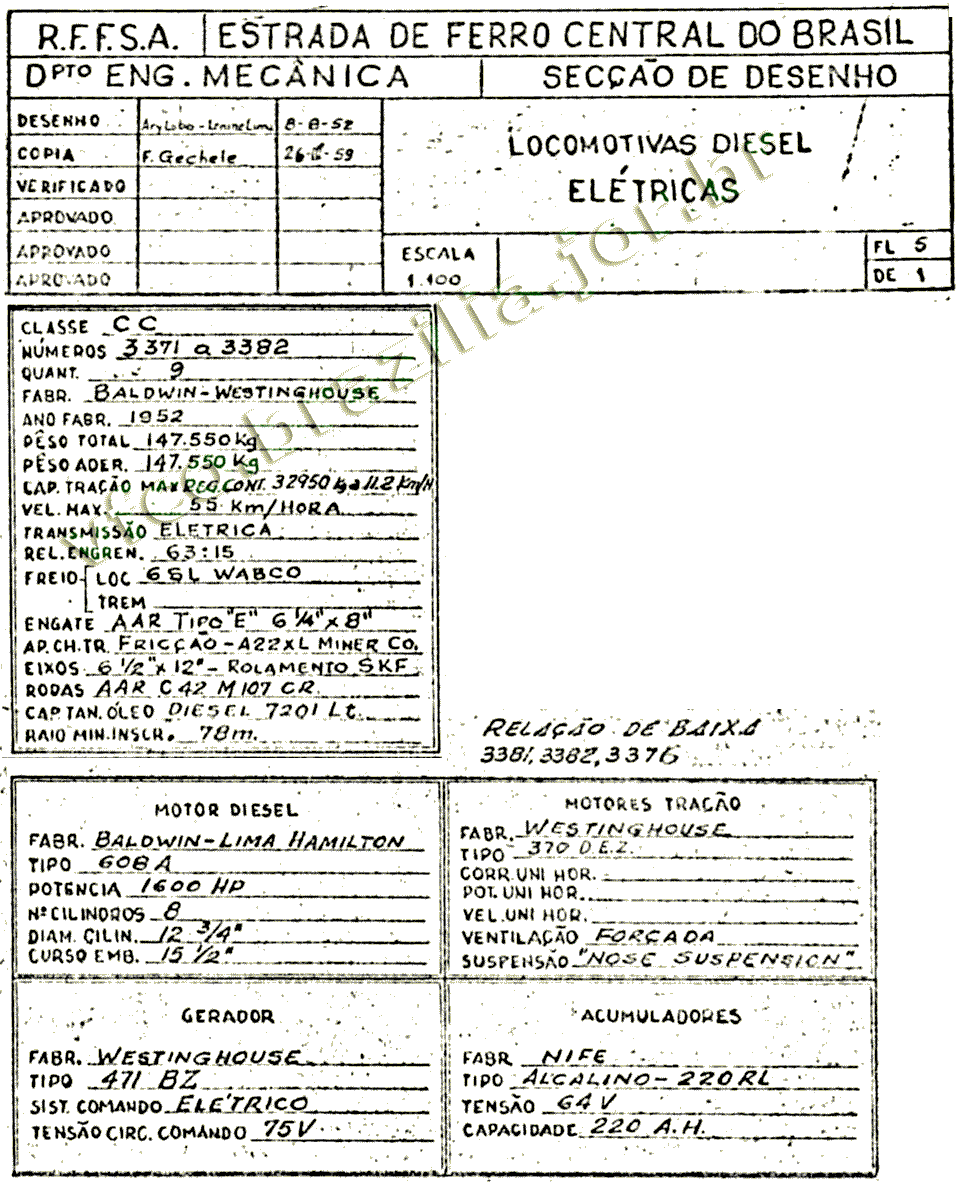 R.F.F.S.A. ESTRADA DE FERRO CENTRAL DO BRASIL
DPTO ENG. MECÂNICA SECÇÃO DE DESENHO
DESENHO Ary Lobo - Lenine Lima 8-8-52
COPIA F. Gechele 26-II-59
VERIFICADO
APROVADO
APROVADO
APROVADO
LOCOMOTIVAS DIESEL
ELÉTRICAS
ESCALA
1.100
FL 5
DE 1
CLASSE CC
NÚMEROS 3371 a 3382
QUANT. 9
FABR. BALDWIN-WESTINGHOUSE
ANO FABR. 1952
PÊSO TOTAL 147.550 Kg
PÊSO ADER. 147.550 Kg
CAP. TRAÇÃO MAX REG. CONT. 32950 Kg a 11.2 Km/H
VEL. MAX. 55 Km/HORA
TRANSMISSÃO ELETRICA
REL. ENGREN. 63:15
FREIO LOC 6SL WABCO
TREM
ENGATE AAR TIPO "E" 6 1/4" x 8"
AP. CH. TR. FRICÇÃO - A22XL MINER CO.
EIXOS 6 1/2" x 12" - ROLAMENTO SKF
RODAS AAR C42 M107 CR.
CAP. TAN. ÓLEO DIESEL 7201 Lt.
RAIO MIN. INSCR. 78m.
RELAÇÃO DE BAIXA
3381, 3382, 3376
MOTOR DIESEL
FABR. BALDWIN-LIMA HAMILTON
TIPO 608A
POTENCIA 1600 HP
Nº CILINDROS 8
DIAM. CILIN. 12 3/4"
CURSO EMB. 15 1/2"
MOTORES TRAÇÃO
FABR. WESTINGHOUSE
TIPO 370 D.E.Z.
CORR. UNI HOR.
POT. UNI HOR.
VEL. UNI HOR.
VENTILAÇÃO FORÇADA
SUSPENSÃO "NOSE SUSPENSION"
GERADOR
FABR. WESTINGHOUSE
TIPO 471 BZ
SIST. COMANDO ELÉTRICO
TENSÃO CIRC. COMANDO 75V
ACUMULADORES
FABR NIFE
TIPO ALCALINO - 220 RL
TENSÃO 64 V
CAPACIDADE 220 A.H.
vfco.brazilia.jor.br